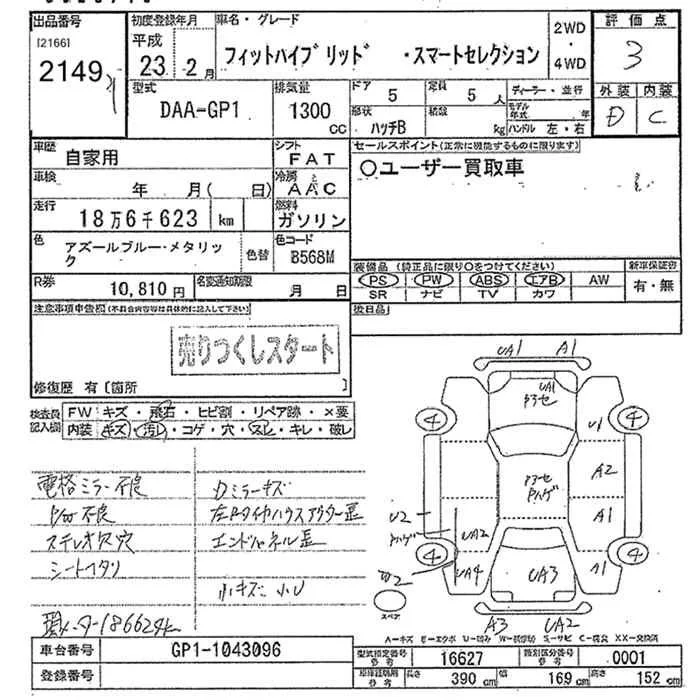 出品番号 初度登録年月 車名・グレード 2WD・4WD 評価点
I2166I
2149
平成 23年 2月 フィットハイブリッド ・スマートセレクション 3
型式 排気量 ドア 5 定員 5人 ディーラー・並行 外装 内装
DAA-GP1 1300CC 形状 ハッチB 積載 kg モデル年式 年 ハンドル 左・右 D C
車歴 自家用 シフト FAT セールスポイント(正常に機能するものに限ります)
車検 年 月( 日) 冷房 AAC ○ユーザー買取車
走行 18万6千623 km 燃料 ガソリン
色 アズールブルー・メタリック 色替 色コード B568M
装備品(純正品に限り○をつけてください) 新車保証書
R券 10,810円 名変通知期限 月 日 PS PW ABS エアB AW 有・無
SR ナビ TV カワ
注意事項申告欄(不具合内容等は具体的に記入して下さい) 後日品
売りつくしスタート
修復歴 有〔箇所 〕
検査員記入欄 FW キズ・飛石・ヒビ割・リペア跡・×要
内装 キズ・汚レ・コゲ・穴・スレ・キレ・破レ
電格ミラー不良 Dミラーキズ
P/W不良 左Rタイヤハウスアウター歪
ステレオ欠穴 エンドパネル歪
シートヘタリ
小キズ 小U
UA1 A1
UA1
4 4
U1
A2
A1
U2
UA2
4 4
W2 UA4 UA3 A1
スペア
A3 UA2
A-キズ E-エクボ U-凹み W-補修跡 S-サビ C-腐食 XX-交換済
車台番号 GP1-1043096 型式指定番号 参考 16627 類別区分番号 参考 0001
登録番号 長さ 390cm 幅 169cm 高さ 152cm